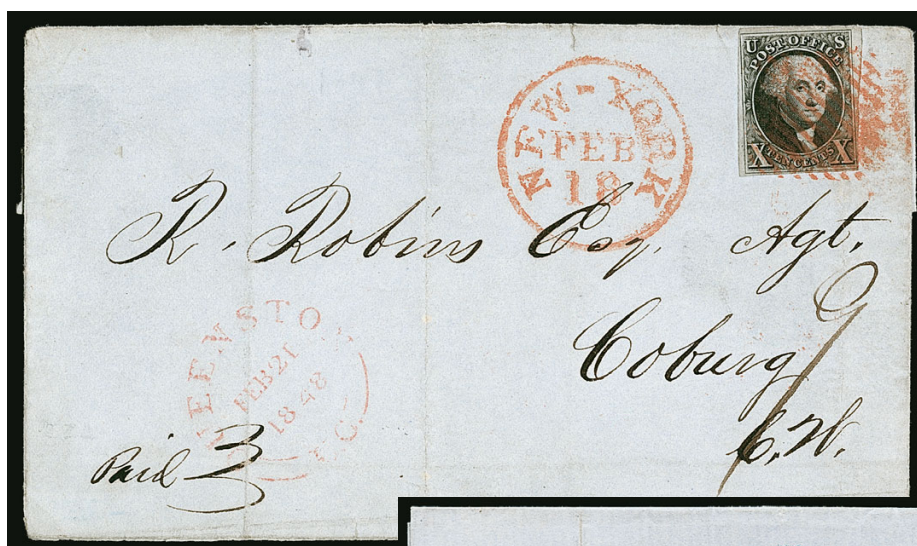 U S
POST OFFICE
X TEN CENTS X
NEW-YORK
FEB
18
R. Robins Esq. Agt.
Coburg
C.W.
EENSTO
FEB 21
1848
C.
Paid 3